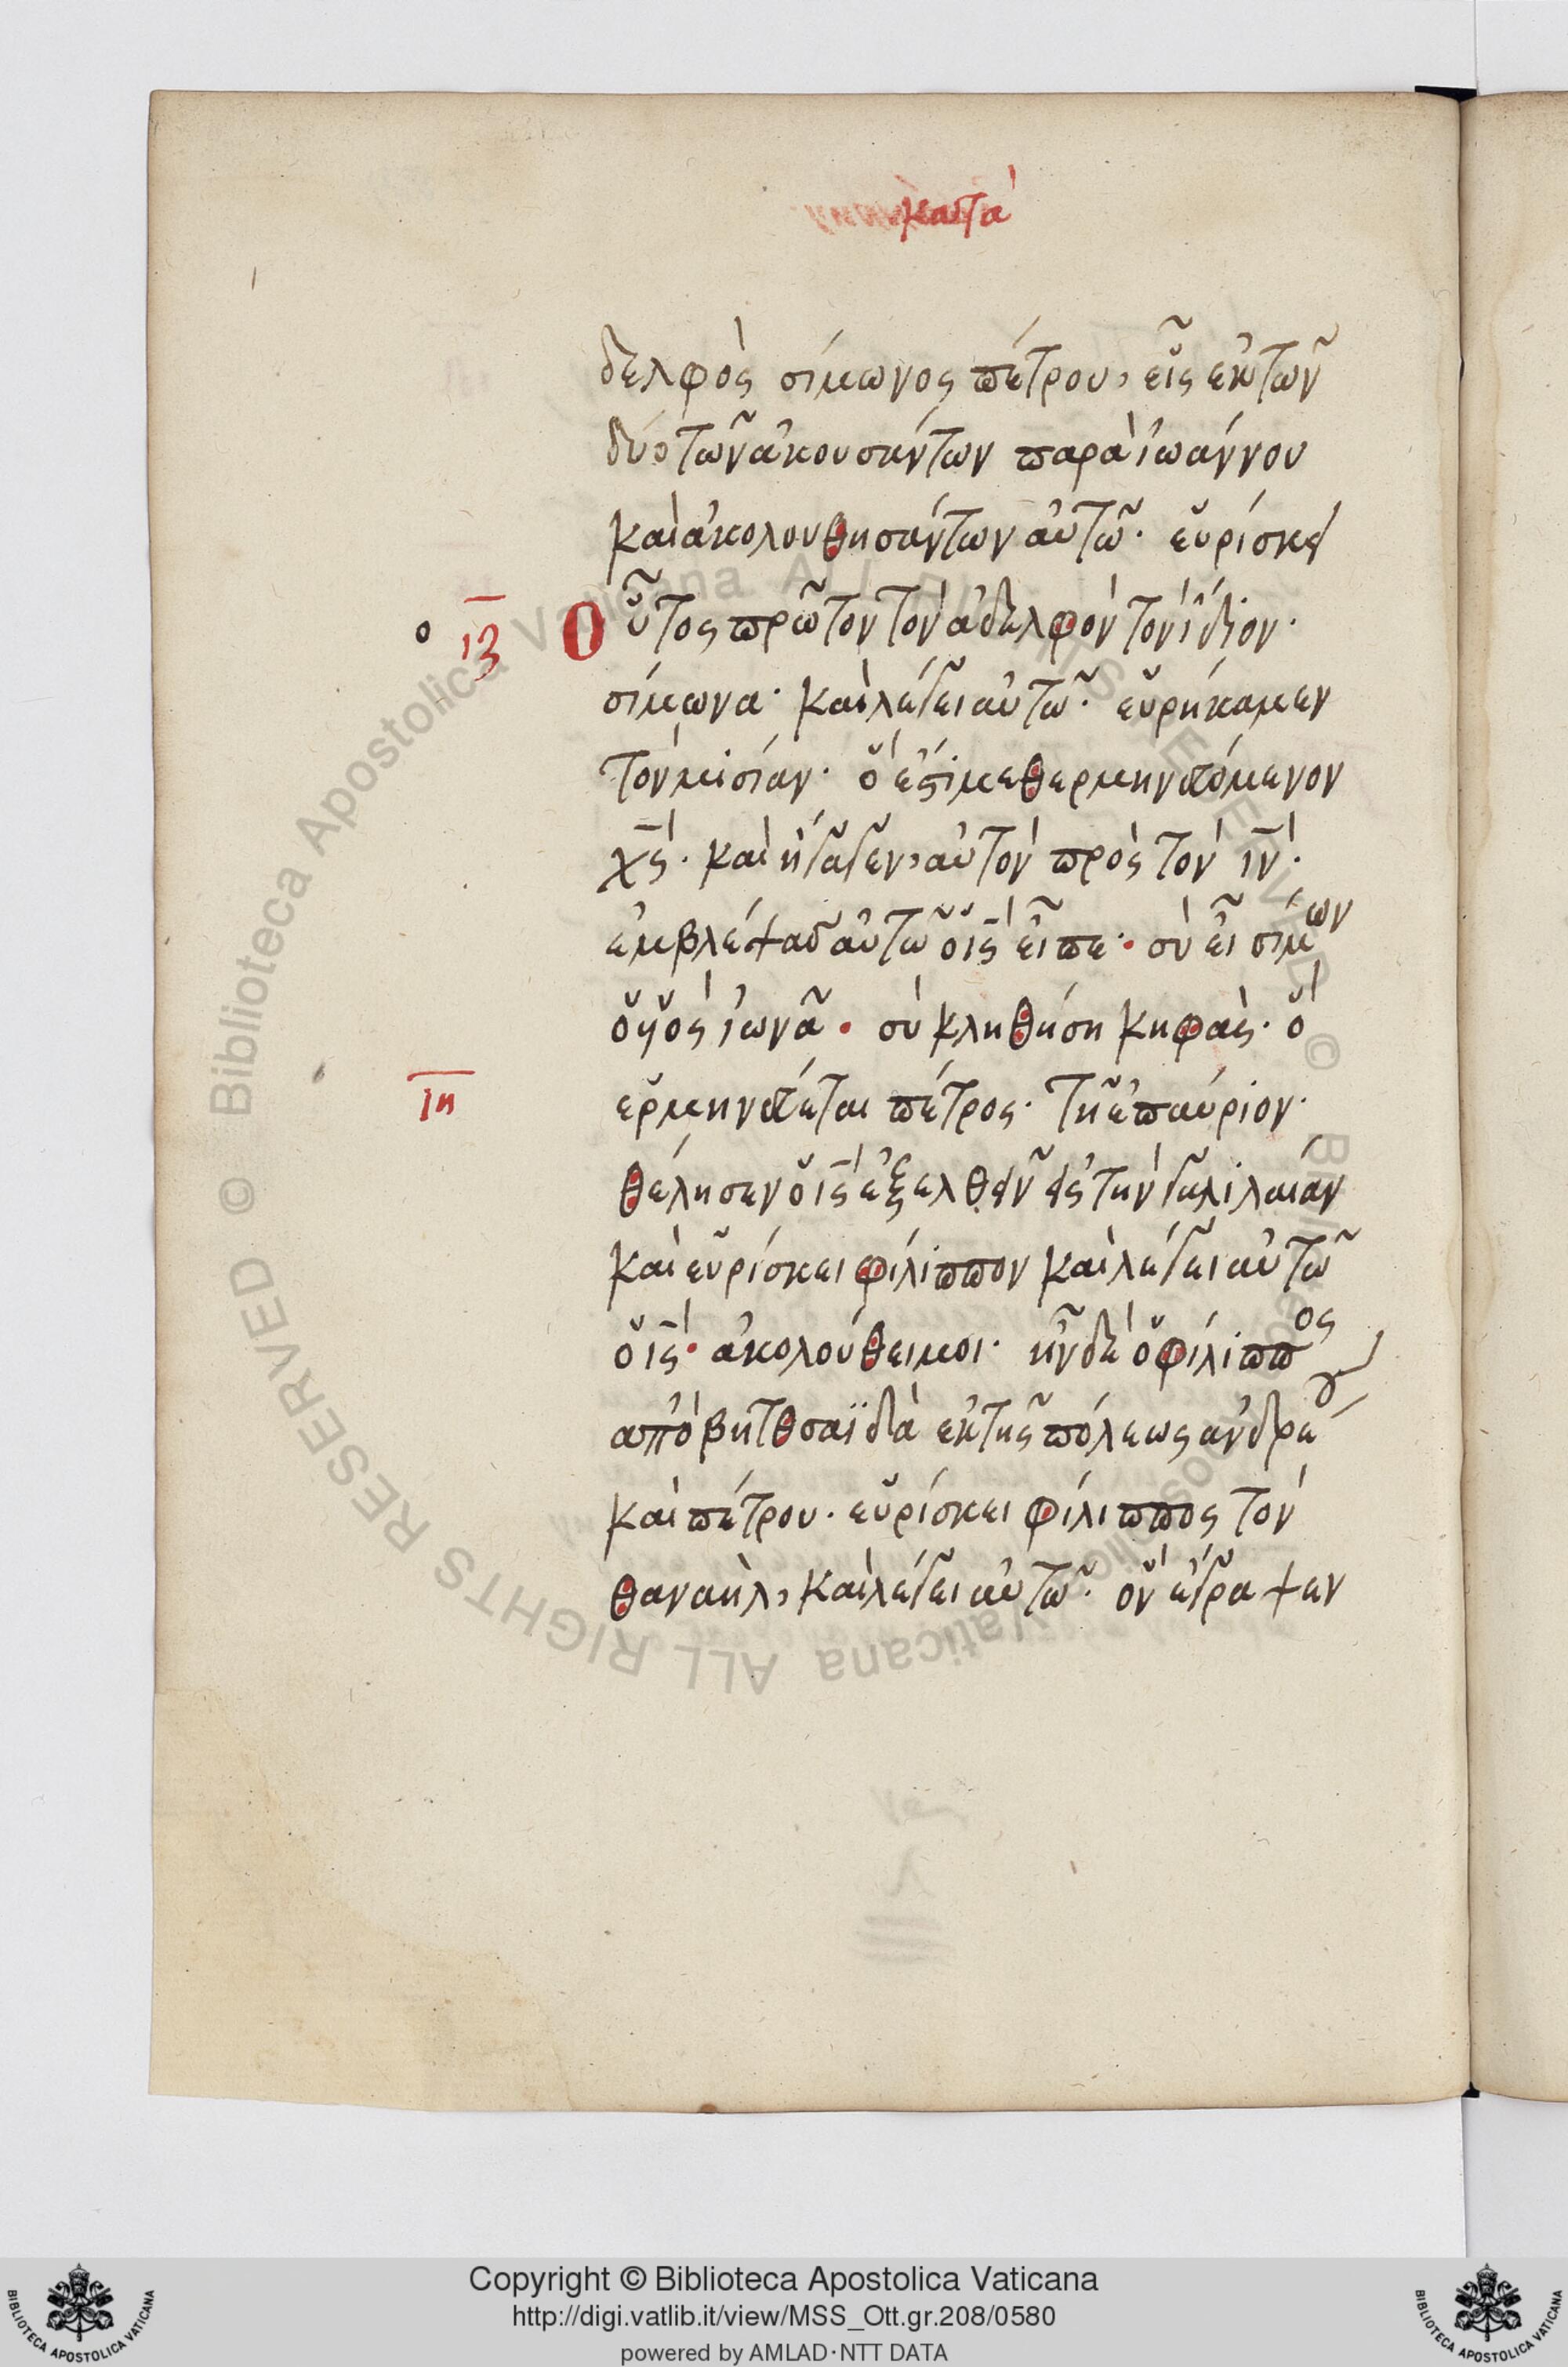 κατὰ
δελφὸς σίμωνος πέτρου, εἷς ἐκ τῶν
δύο τῶν ἀκουσάντων παρὰ ἰωάννου
καὶ ἀκολουθησάντων αὐτῶ· εὑρίσκει
ο ιζ Οὗτος πρῶτον τὸν ἀδελφὸν τὸν ἴδιον·
σίμωνα· καὶ λέγει αὐτῶ· εὑρήκαμεν
τὸν μεσίαν· ὅ ἐστι μεθερμηνευόμενον
χς· καὶ ἤγαγεν, αὐτὸν πρὸς τὸν ιν·
ἐμβλέψας αὐτῶ ὁ ις εἶπε· σὺ εἶ σίμων
ὁ υἱὸς ἰωνᾶ· σὺ κληθήση κηφὰς· ὃ
ιη ἑρμηνεύεται πέτρος· τῆ ἐπαύριον·
θέλησεν ὁ ις ἐξελθεῖν εἰς τὴν γαλιλαίαν
καὶ εὑρίσκει φίλιππον καὶ λέγει αὐτῶ
ὁ ις· ἀκολούθει μοι· ἦν δὲ ὁ φίλιππος
ἀπὸ βητθσαϊδὰ ἐκ τῆς πόλεως ἀνδρέου
καὶ πέτρου· εὑρίσκει φίλιππος τὸν
θαναὴλ, καὶ λέγει αὐτῶ· ὃν ἔγραψεν
Copyright © Biblioteca Apostolica Vaticana
http://digi.vatlib.it/view/MSS_Ott.gr.208/0580
powered by AMLAD·NTT DATA
BIBLIOTECA APOSTOLICA VATICANA
BIBLIOTECA APOSTOLICA VATICANA
© Biblioteca Apostolica Vaticana ALL RIGHTS RESERVED © Biblioteca Apostolica Vaticana ALL RIGHTS RESERVED